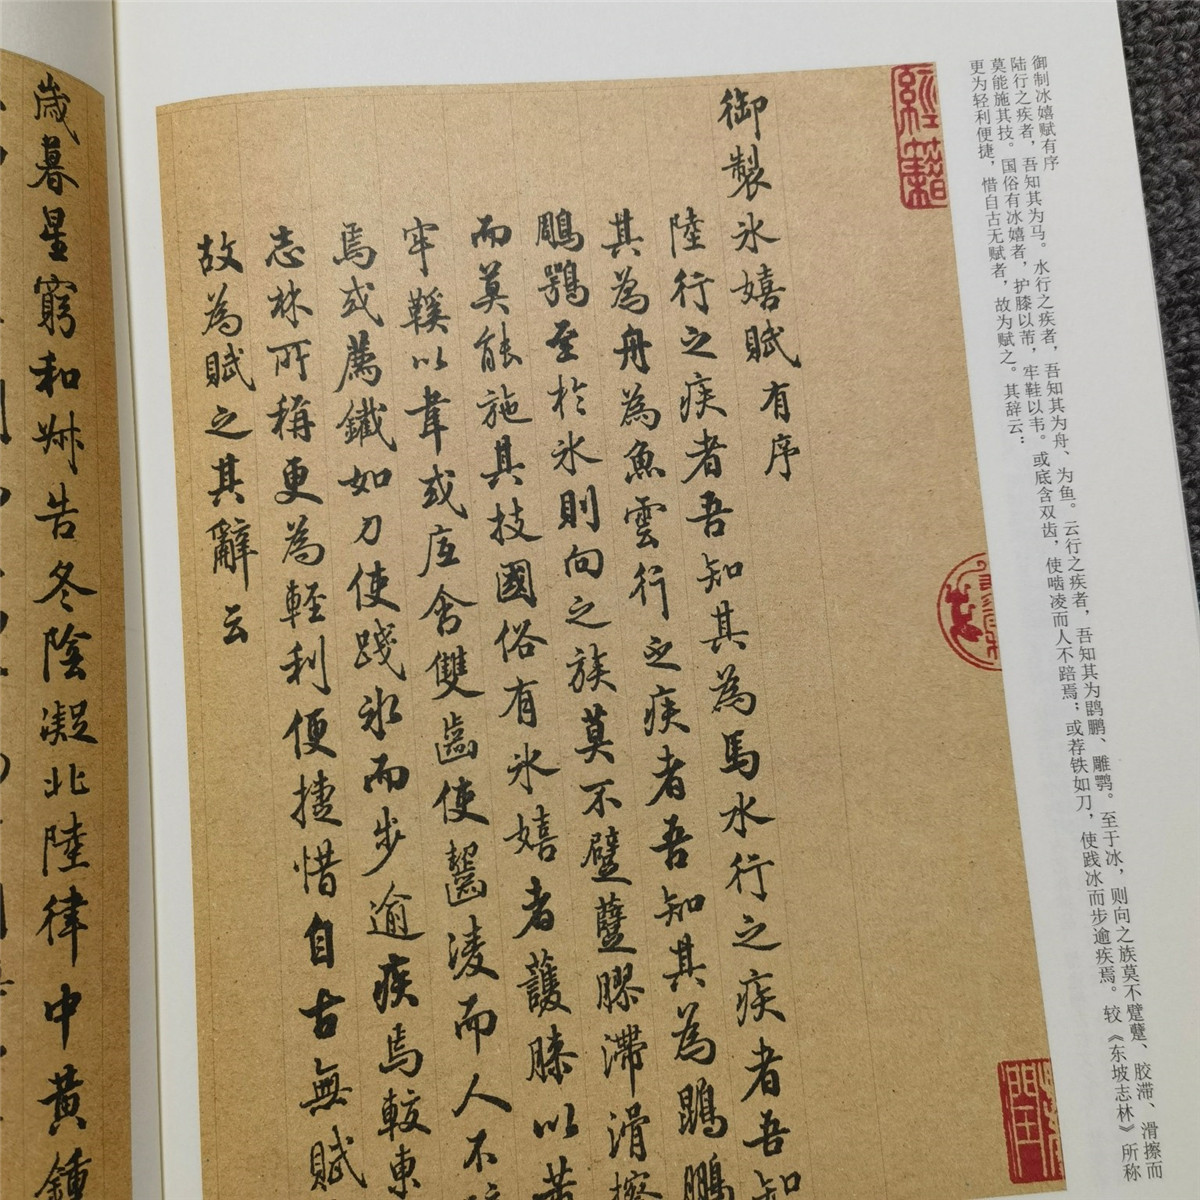 御制冰嬉赋有序
陆行之疾者，吾知其为马。水行之疾者，吾知其为舟、为鱼。云行之疾者，吾知其为鹍鹏、雕鹗。至于冰，则向之族莫不躄躠、胶滞、滑擦而
莫能施其技。国俗有冰嬉者，护膝以芾，牢鞋以韦。或底含双齿，使啮凌而人不踣焉；或荐铁如刀，使践冰而步逾疾焉。较《东坡志林》所称
更为轻利便捷，惜自古无赋者，故为赋之。其辞云：
經籍
御製氷嬉賦有序
陸行之疾者吾知其為馬水行之疾者吾知
其為舟為魚雲行之疾者吾知其為鵾鵬
鵰鶚至於氷則向之族莫不躄躠膠滯滑擦
而莫能施其技國俗有氷嬉者護膝以芾
牢鞵以韋或底含雙齒使齧凌而人不
焉或薦鐵如刀使踐冰而步逾疾焉較東
志林所稱更為輕利便捷惜自古無賦
故為賦之其辭云
歲暮星窮和叔告冬陰凝北陸律中黃鍾